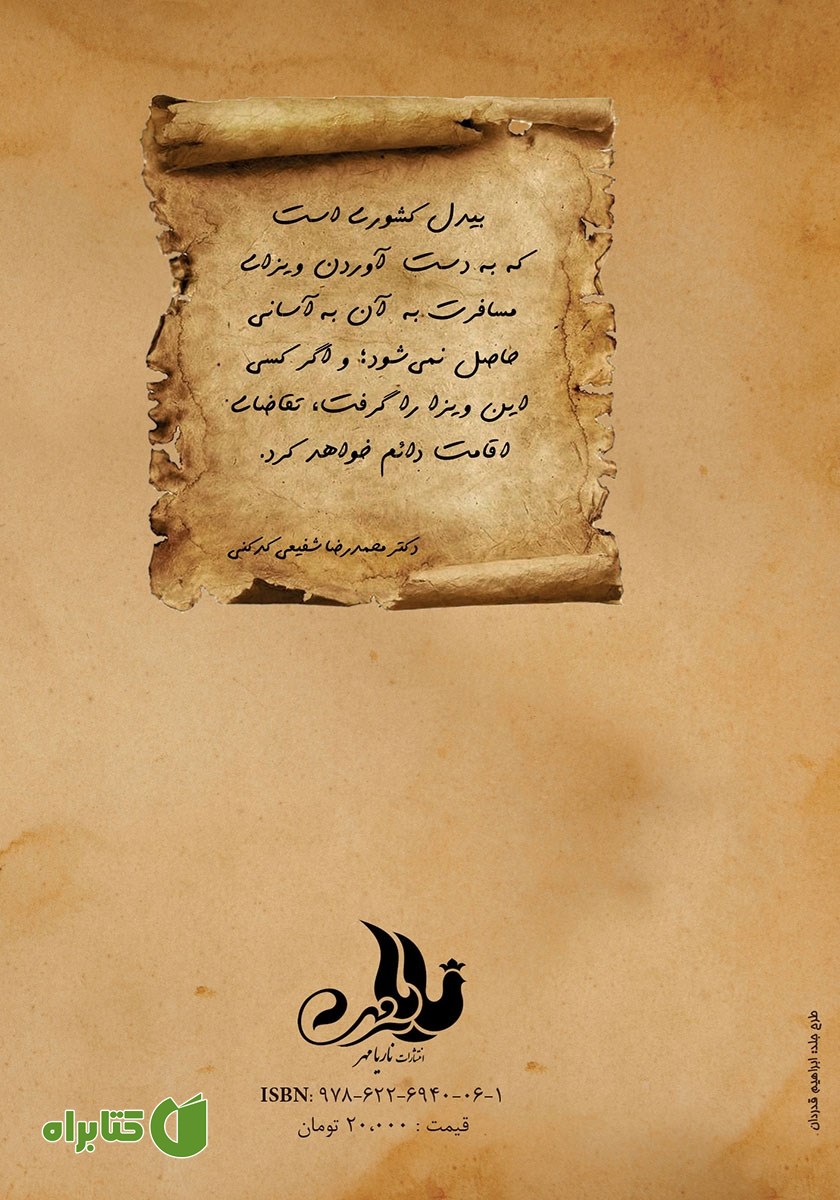 بیدل کشوری است
که به دست آوردن ویزای
مسافرت به آن به آسانی
حاصل نمی‌شود؛ و اگر کسی
این ویزا را گرفت، تقاضای
اقامت دائم خواهد کرد.
دکتر محمدرضا شفیعی کدکنی
ناریامهر
انتشارات ناریا مهر
ISBN: ۹۷۸-۶۲۲-۶۹۴۰-۰۶-۱
قیمت : ۲۰،۰۰۰ تومان
کتابراه
طرح جلد: ابراهیم قدردان